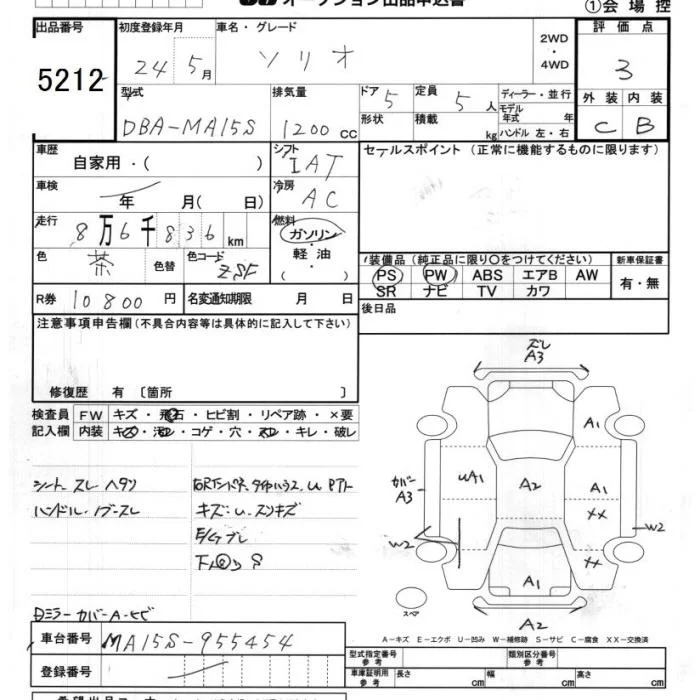 オークション出品申込書
①会場控
出品番号
5212
初度登録年月
24年5月
車名・グレード
ソリオ
2WD
・
4WD
評価点
3
外装 内装
C B
型式
DBA-MA15S
排気量
1200cc
ドア
5
形状
定員
5人
積載
kg
ディーラー・並行
モデル
年式 年
ハンドル 左・右
車歴
自家用・( )
シフト
IAT
車検
年 月( 日)
冷房
AC
走行
8万6千836km
燃料
ガソリン
・
軽油
・
( )
色
茶
色替
色コード
ZSF
R券
10800円
名変通知期限 月 日
セールスポイント (正常に機能するものに限ります)
装備品 (純正品に限り○をつけてください)
PS PW ABS エアB AW
SR ナビ TV カワ
新車保証書
有・無
後日品
注意事項申告欄(不具合内容等は具体的に記入して下さい)
修復歴 有 〔箇所 〕
検査員
記入欄
FW キズ・飛石・ヒビ割・リペア跡・×要
内装 キズ・汚れ・コゲ・穴・スレ・キレ・破レ
シート スレ ヘタリ
ハンドル・ノブースレ
キズ・U・スリキズ
Dミラーカバー A・ヒビ
ズレ
A3
A1
UA1
A2
A1
カバー
A3
XX
W2
W2
XX
A1
スペア
A2
A-キズ E-エクボ U-凹み W-補修跡 S-サビ C-腐食 XX-交換済
車台番号
MA15S-955454
登録番号
型式指定番号
参考
類別区分番号
参考
車庫証明用
参考
長さ cm 幅 cm 高さ cm